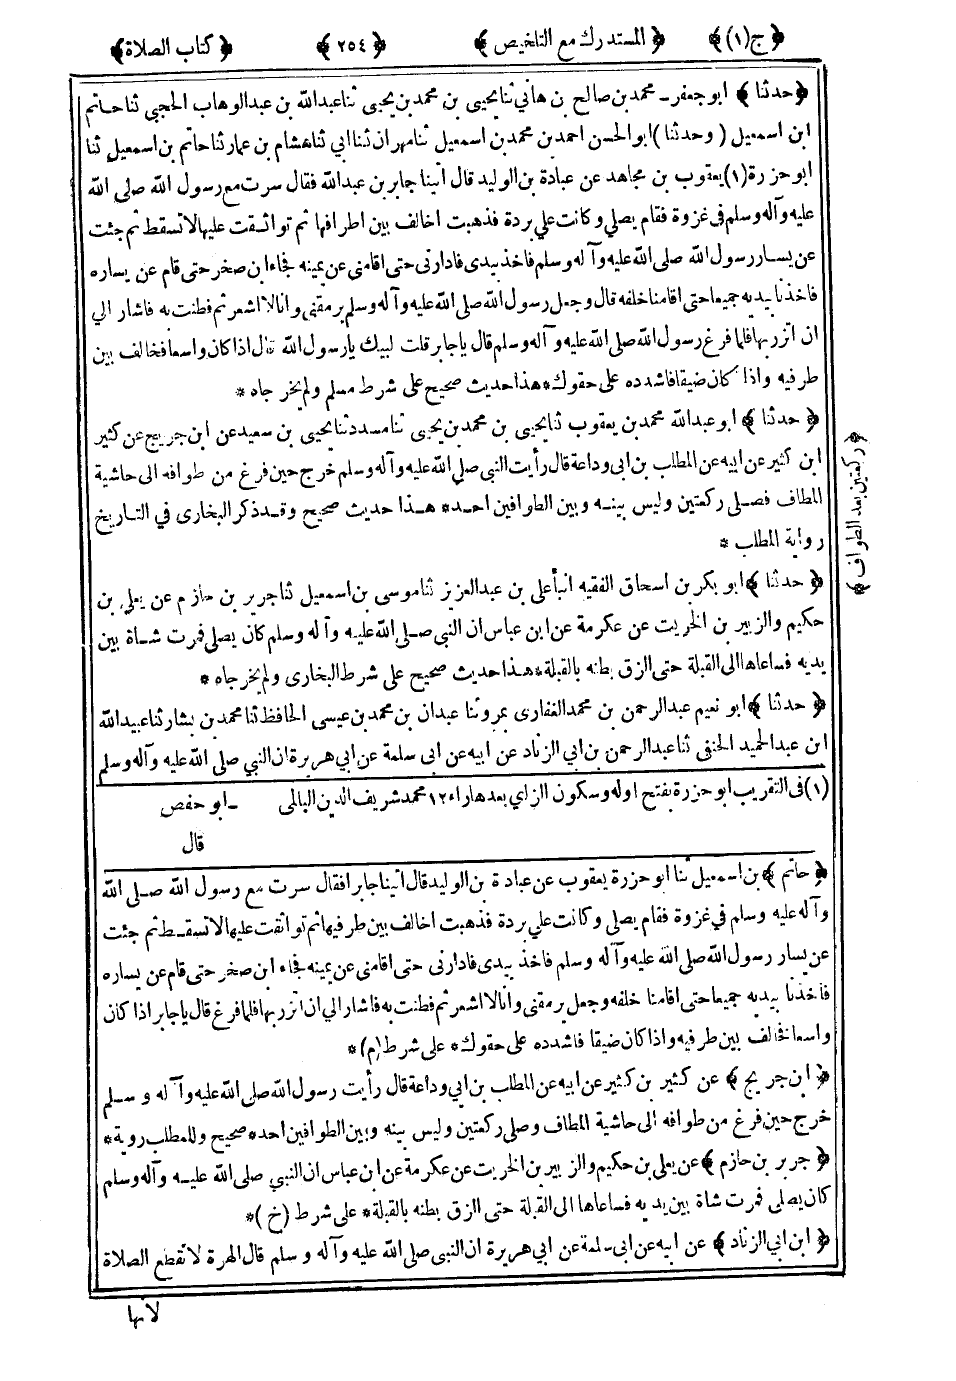 ﴿ج(١)﴾ ﴿المستدرك مع التلخيص﴾ ﴿٢٥٤﴾ ﴿كتاب الصلاة﴾
﴿حدثنا﴾ ابو جعفر ـ محمد بن صالح بن هاني ثنا يحيى بن محمد بن يحيى ثنا عبد الله بن عبد الوهاب الحجبى ثنا حاتم
ابن اسمعيل (وحدثنا) ابو الحسن احمد بن محمد بن اسمعيل ثنا مهران ثنا ابى ثنا هشام بن عمار ثنا حاتم بن اسمعيل ثنا
ابو حزرة (١) يعقوب بن مجاهد عن عبادة بن الوليد قال أتينا جابر بن عبد الله فقال سرت مع رسول الله صلى الله
عليه وآله وسلم فى غزوة فقام يصلي وكانت علي بردة فذهبت اخالف بين اطرافها ثم تواثقت عليها لا تسقط ثم جئت
عن يسار رسول الله صلى الله عليه وآله وسلم فاخذ بيدى فادارنى حتى اقامنى عن يمينه فجاء ابن صخر حتى قام عن يساره
فاخذنا بيديه جميعا حتى اقامنا خلفه قال وجعل رسول الله صلى الله عليه وآله وسلم يرمقنى وانا لا اشعر ثم فطنت به فاشار الي
ان اتزر بها فلما فرغ رسول الله صلى الله عليه وآله وسلم قال يا جابر قلت لبيك يا رسول الله قال اذا كان واسعا فخالف بين
طرفيه واذا كان ضيقا فاشدده على حقوك * هذا حديث صحيح على شرط مسلم ولم يخرجاه *
﴿حدثنا﴾ ابو عبد الله محمد بن يعقوب ثنا يحيى بن محمد بن يحيى ثنا مسدد ثنا يحيى بن سعيد عن ابن جريج عن كثير
ابن كثير عن ابيه عن المطلب بن ابى وداعة قال رأيت النبى صلى الله عليه وآله وسلم خرج حين فرغ من طوافه الى حاشية
المطاف فصلى ركعتين وليس بينه وبين الطوافين احد * هذا حديث صحيح وقد ذكر البخارى في التاريخ
رواية المطلب *
﴿ركعتين بعد الطواف﴾
﴿حدثنا﴾ ابو بكر بن اسحاق الفقيه انبأ على بن عبد العزيز ثنا موسى بن اسمعيل ثنا جرير بن حازم عن يعلى بن
حكيم والزبير بن الخريت عن عكرمة عن ابن عباس ان النبى صلى الله عليه وآله وسلم كان يصلى فمرت شاة بين
يديه فساعاها الى القبلة حتى الزق بطنه بالقبلة * هذا حديث صحيح على شرط البخارى ولم يخرجاه *
﴿حدثنا﴾ ابو نعيم عبد الرحمن بن محمد الغفارى بمرو ثنا عبدان بن محمد بن عيسى الحافظ ثنا محمد بن بشار ثنا عبيد الله
ابن عبد الحميد الحنفى ثنا عبد الرحمن بن ابى الزناد عن ابيه عن ابى سلمة عن ابي هريرة ان النبي صلى الله عليه وآله وسلم
(١) فى التقريب ابو حزرة بفتح اوله وسكون الزاي بعدها راء ١٢ محمد شريف الدين البالمى ـ ابو حفص
قال
﴿حاتم﴾ بن اسمعيل ثنا ابو حزرة يعقوب عن عبادة بن الوليد قال اتينا جابرا فقال سرت مع رسول الله صلى الله
وآله عليه وسلم في غزوة فقام يصلى وكانت علي بردة فذهبت اخالف بين طرفيها ثم تواثقت عليها لا تسقط ثم جئت
عن يسار رسول الله صلى الله عليه وآله وسلم فاخذ بيدى فادارنى حتى اقامنى عن يمينه فجاء ابن صخر حتى قام عن يساره
فاخذنا بيديه جميعا حتى اقامنا خلفه وجعل يرمقنى وانا لا اشعر ثم فطنت به فاشار الي ان اتزر بها فلما فرغ قال يا جابر اذا كان
واسعا فخالف بين طرفيه واذا كان ضيقا فاشدده على حقوك * على شرط (م) *
﴿ابن جريج﴾ عن كثير بن كثير عن ابيه عن المطلب بن ابي وداعة قال رأيت رسول الله صلى الله عليه وآله وسلم
خرج حين فرغ من طوافه الى حاشية المطاف وصلى ركعتين وليس بينه وبين الطوافين احد * صحيح وللمطلب روية *
﴿جرير بن حازم﴾ عن يعلى بن حكيم والزبير بن الخريت عن عكرمة عن ابن عباس ان النبي صلى الله عليه وآله وسلم
كان يصلى فمرت شاة بين يديه فساعاها الى القبلة حتى الزق بطنه بالقبلة * على شرط (خ) *
﴿ابن ابي الزناد﴾ عن ابيه عن ابى سلمة عن ابي هريرة ان النبى صلى الله عليه وآله وسلم قال الهرة لا تقطع الصلاة
لانها